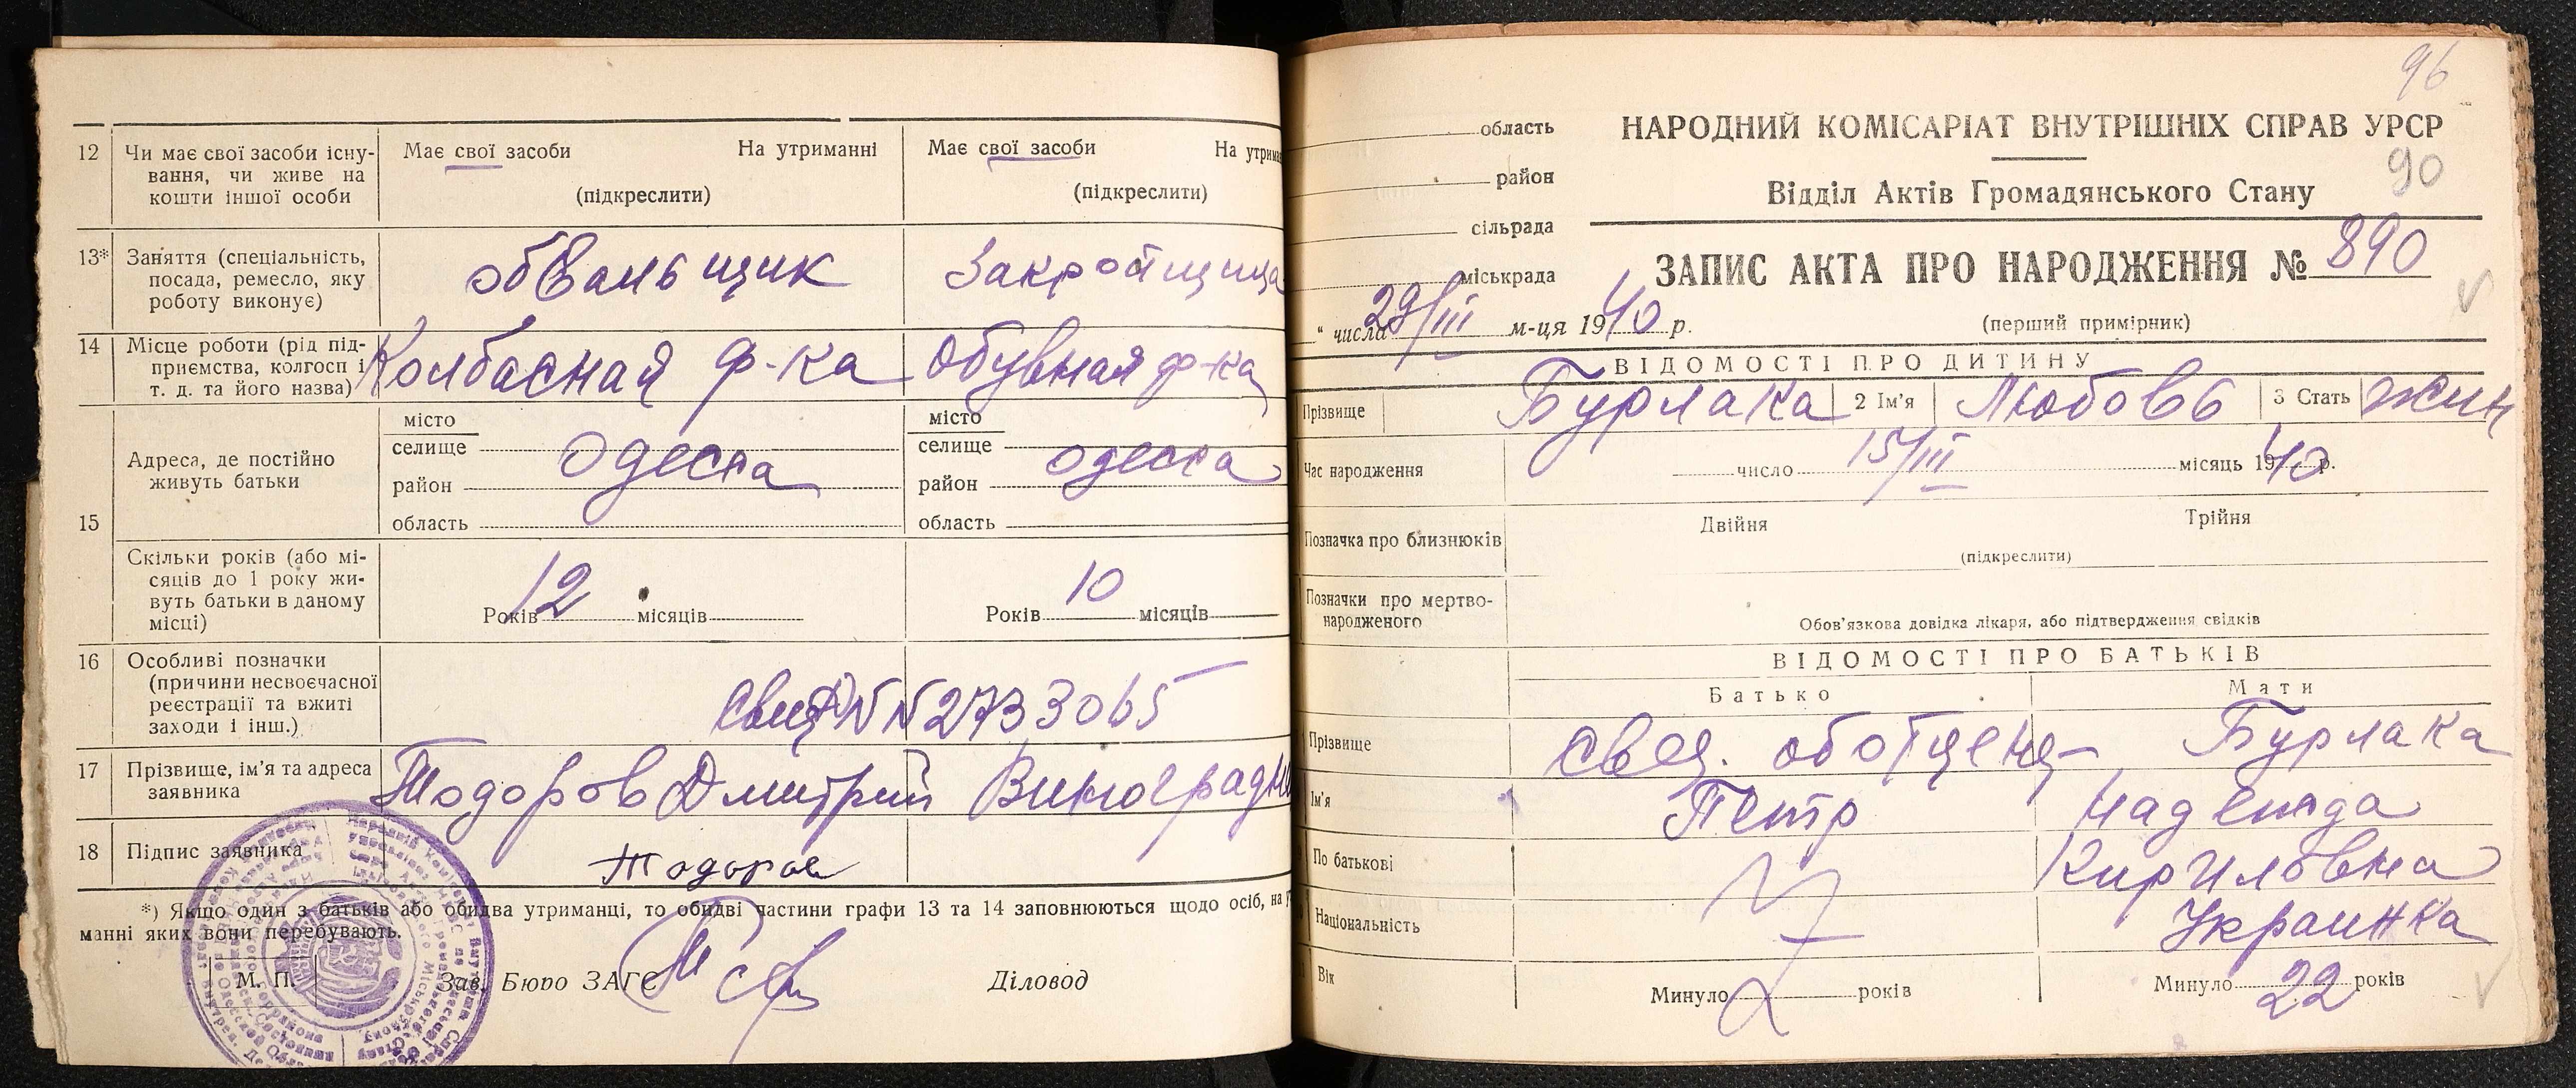 12 Чи має свої засоби існу- Має свої засоби На утриманні Має свої засоби На утрима
вання, чи живе на
кошти іншої особи (підкреслити) (підкреслити)
13* Заняття (спеціальність, обвальщик Закройщица
посада, ремесло, яку
роботу виконує)
14 Місце роботи (рід під- Колбасная ф-ка Обувная ф-ка
приємства, колгосп і
т. д. та його назва)
місто місто
Адреса, де постійно селище Одесса селище Одесса
живуть батьки район район
15 область область
Скільки років (або мі-
сяців до 1 року жи-
вуть батьки в даному Років 12 місяців Років 10 місяців
місці)
16 Особливі позначки
(причини несвоєчасної
реєстрації та вжиті
заходи і інш.) N 2733065
17 Прізвище, ім'я та адреса Тодоров Дмитрий
заявника
18 Підпис заявника Тодоров
*) Якщо один з батьків або обидва утриманці, то обидві частини графи 13 та 14 заповнюються щодо осіб, на у
манні яких вони перебувають.
М. П. Зав. Бюро ЗАГС Діловод
96
область НАРОДНИЙ КОМІСАРІАТ ВНУТРІШНІХ СПРАВ УРСР
90
район Відділ Актів Громадянського Стану
сільрада
міськрада ЗАПИС АКТА ПРО НАРОДЖЕННЯ № 890
" числа 29/III м-ця 1940 р. (перший примірник)
ВІДОМОСТІ ПРО ДИТИНУ
Прізвище Бурлака 2 Ім'я Любовь 3 Стать жин
Час народження число 15/III місяць 1940 р.
Позначка про близнюків Двійня Трійня
(підкреслити)
Позначки про мертво-
народженого Обов'язкова довідка лікаря, або підтвердження свідків
ВІДОМОСТІ ПРО БАТЬКІВ
Батько Мати
Прізвище Бурлака
Ім'я Петр Надежда
По батькові Кириловна
Національність Украинка
Вік Минуло років Минуло 22 років